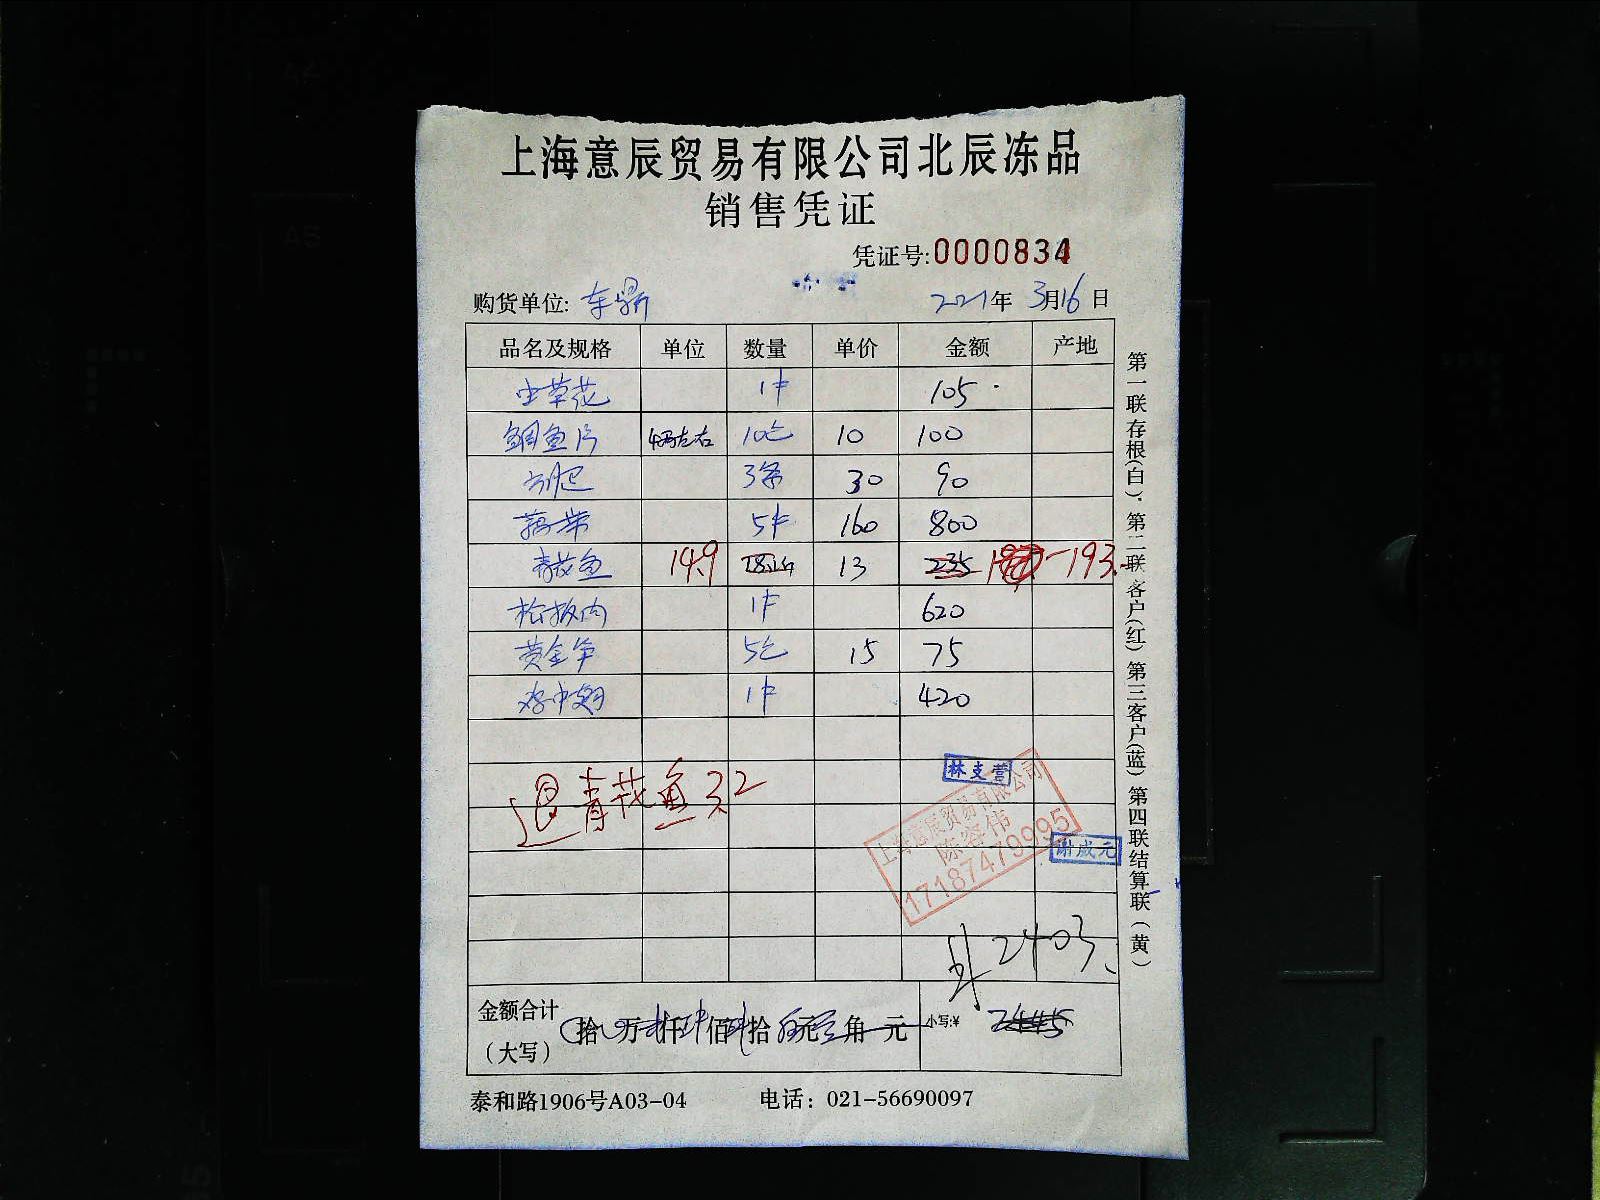 上海意辰贸易有限公司北辰冻品
销售凭证
凭证号:0000834
购货单位: 2021年 3月16日
品名及规格 单位 数量 单价 金额 产地
虫草花 1件 105
鲷鱼片 左右 10包 10 100
3条 30 90
藕带 5件 160 800
青花鱼 14.9 13 235 193.
松板肉 1件 620
黄金笋 5包 15 75
鸡中翅 1件 420
林支营
退青花鱼3.2
上海意辰贸易有限公司
陈容伟
17187479995
谢成元
2403
金额合计 (大写) 拾 万 仟 佰 拾 元 角 元 小写:¥ 2445
泰和路1906号A03-04 电话：021-56690097
第一联存根(白)，第二联客户(红)第三客户(蓝)第四联结算联(黄)